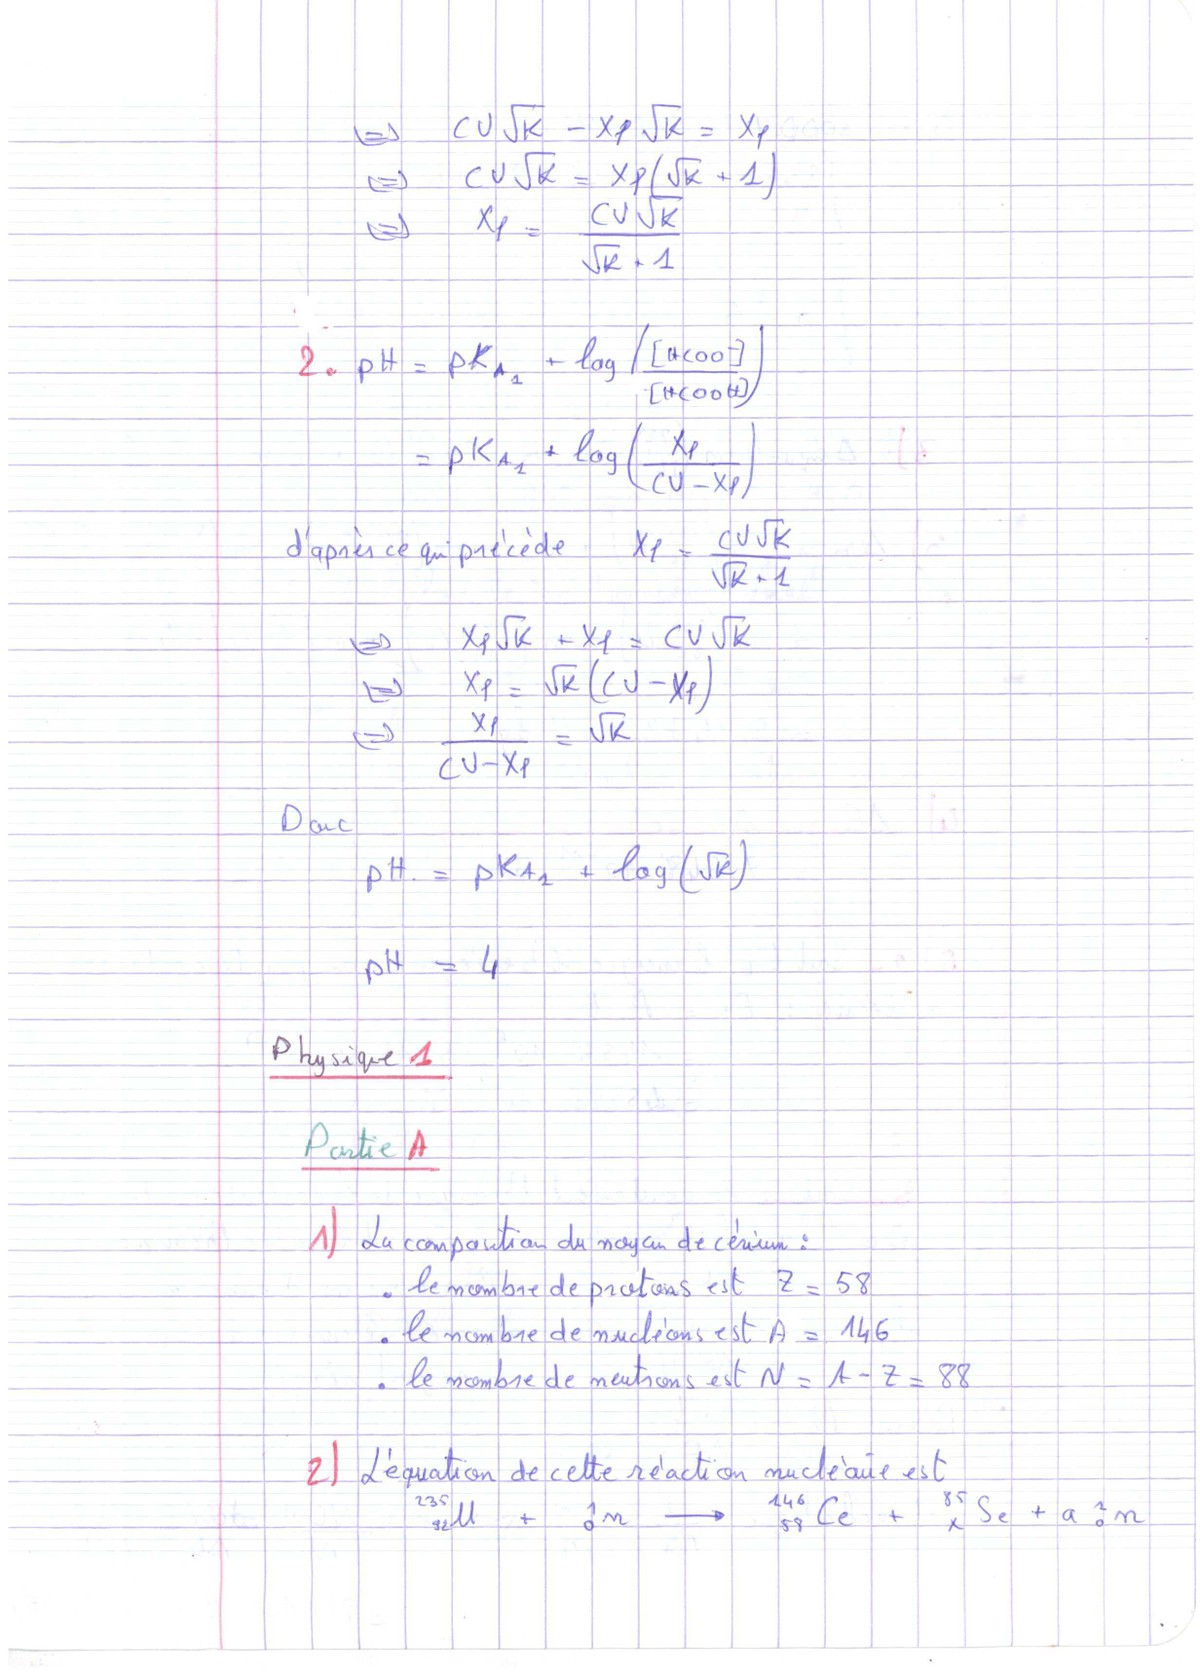 ⇔ CV√K − xf √K = xf
⇔ CV√K = xf(√K + 1)
⇔ xf = CV√K / (√K + 1)
2. pH = pKA1 + log([HCOO⁻] / [HCOOH])
= pKA1 + log(xf / (CV − xf))
d'après ce qui précède xf = CV√K / (√K + 1)
⇔ xf√K + xf = CV√K
⇔ xf = √K(CV − xf)
⇔ xf / (CV − xf) = √K
Donc
pH = pKA1 + log(√K)
pH = 4
Physique 1
Partie A
1) La composition du noyau de cérium :
. le nombre de protons est Z = 58
. le nombre de nucléons est A = 146
. le nombre de neutrons est N = A − Z = 88
2) L'équation de cette réaction nucléaire est
²³⁵₉₂U + ¹₀n ⟶ ¹⁴⁶₅₈Ce + ⁸⁵ₓSe + a ¹₀n